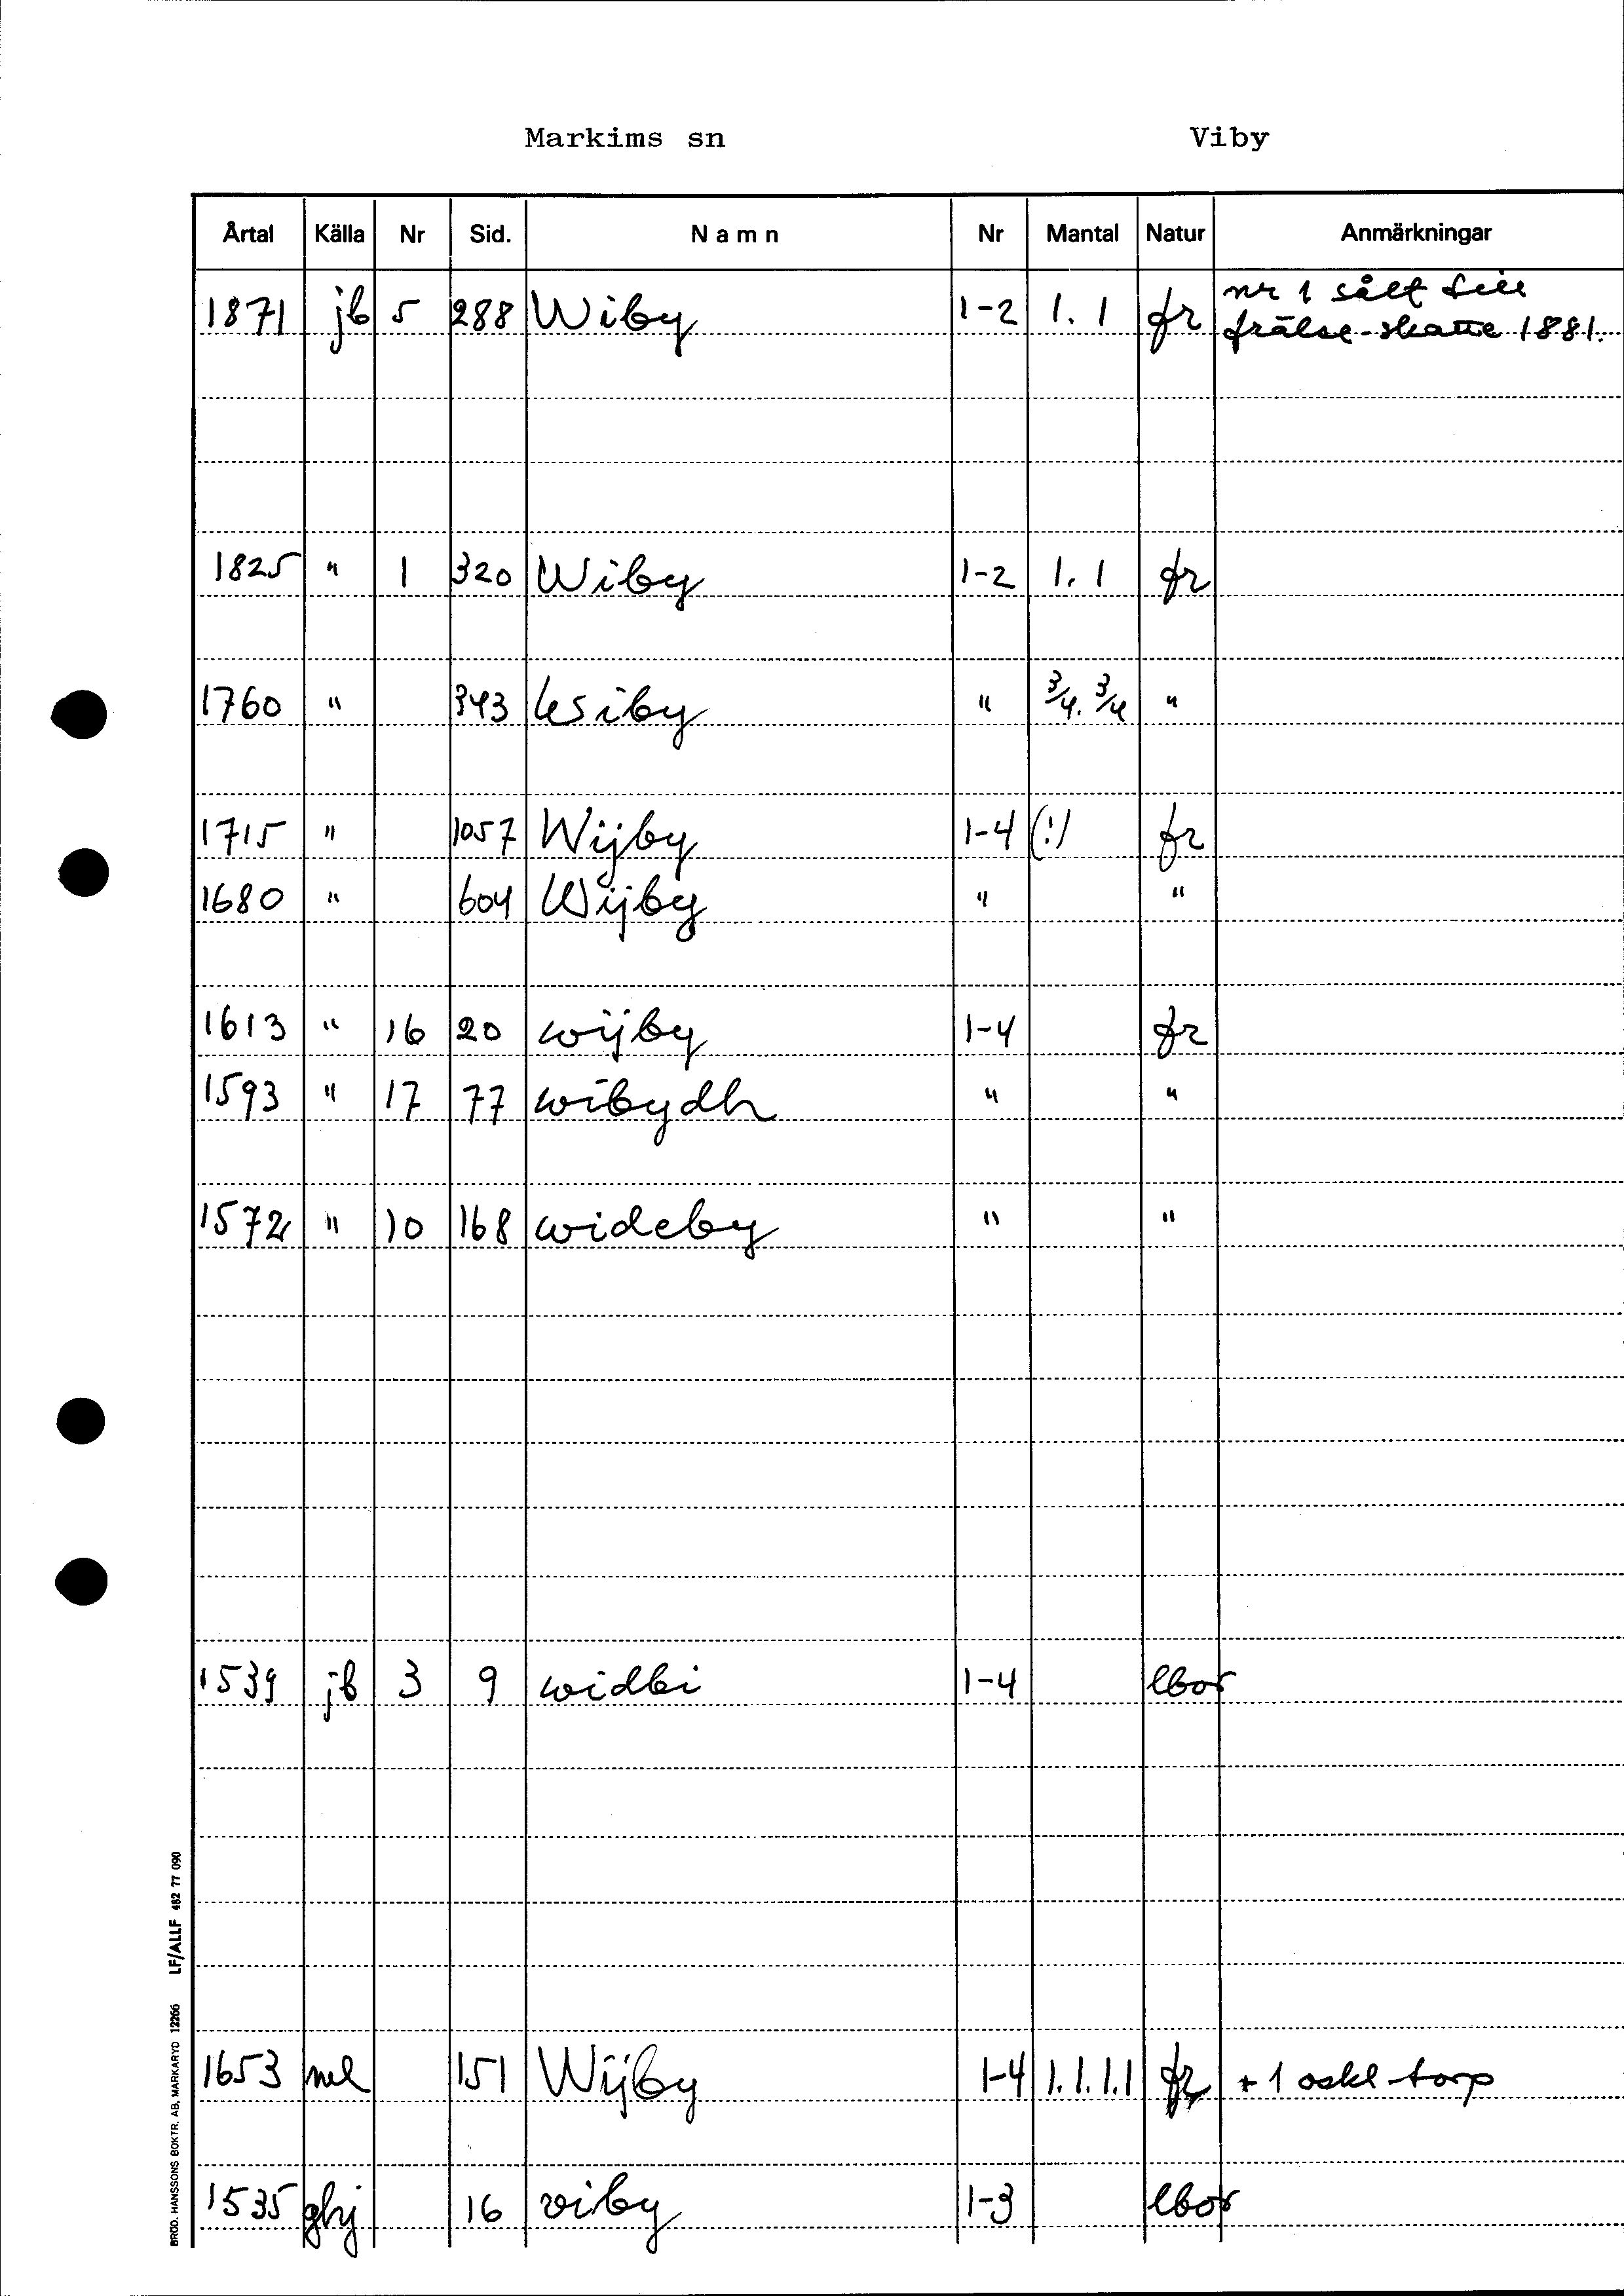 Markims sn Viby
Årtal Källa Nr Sid. Namn Nr Mantal Natur Anmärkningar
nr 1 sålt till
1871 jb 5 288 Wiby 1-2 1. 1 fr frälse-skatte 1881.
1825 " 1 320 Wiby 1-2 1. 1 fr
1760 " 343 Wiby " 3/4. 3/4 "
1715 " 1057 Wijby 1-4 (!) fr
1680 " 604 Wijby " "
1613 " 16 20 wijby 1-4 fr
1593 " 17 77 wibydh " "
1572 " 10 168 wideby " "
1539 jb 3 9 widbi 1-4 lbor
1653 ml 151 Wijby 1-4 1.1.1.1 fr + 1 oskl torp
1535 ghj 16 viby 1-3 lbor
BRÖD. HANSSONS BOKTR. AB, MARKARYD 12266 LF/ALLF 482 77 090